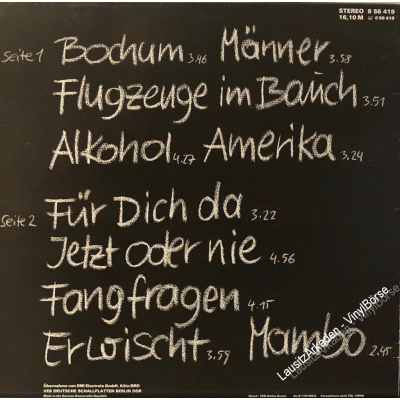 STEREO 8 56 419
16,10 M 0 56 419
Seite 1 Bochum 3.46 Männer 3.58
Flugzeuge im Bauch 3.51
Alkohol 4.27 Amerika 3.24
Seite 2 Für Dich da 3.22
Jetzt oder nie 4.56
Fangfragen 4.15
Erwischt 3.59 Mambo 2.45
LausitzArkaden - VinylBörse
Übernahme von EMI Electrola GmbH, Köln/BRD
VEB DEUTSCHE SCHALLPLATTEN BERLIN DDR
Made in the German Democratic Republic